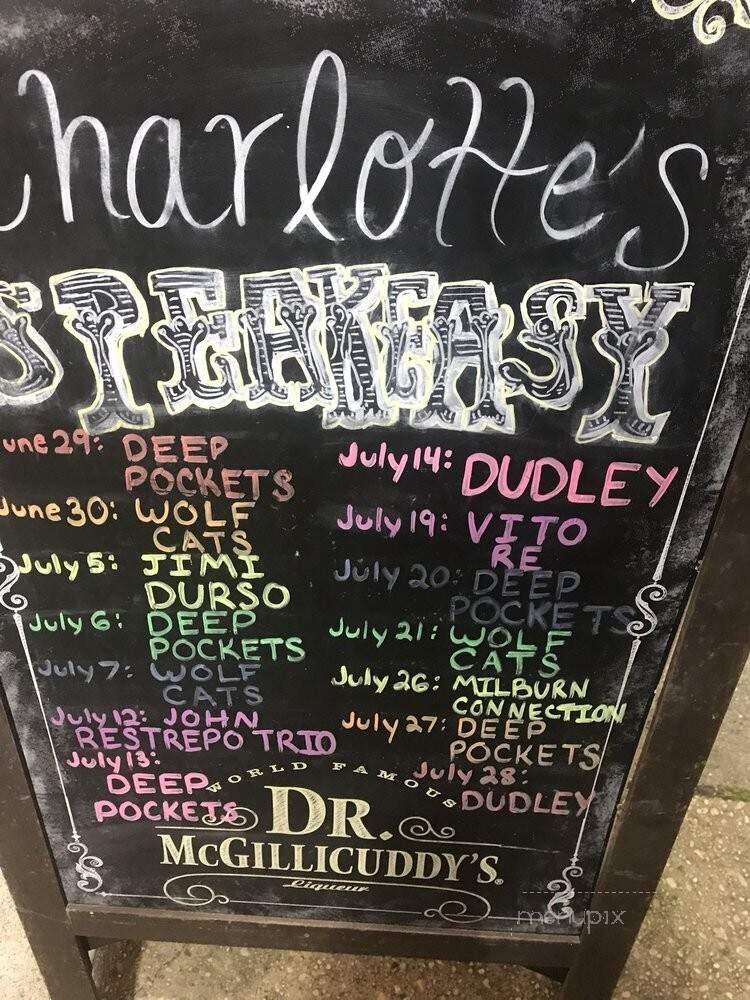 Charlotte's
SPEAKEASY
June 29: DEEP
POCKETS
June 30: WOLF
CATS
July 5: JIMI
DURSO
July 6: DEEP
POCKETS
July 7: WOLF
CATS
July 12: JOHN
RESTREPO TRIO
July 13:
DEEP
POCKETS
July 14: DUDLEY
July 19: VITO
RE
July 20: DEEP
POCKETS
July 21: WOLF
CATS
July 26: MILBURN
CONNECTION
July 27: DEEP
POCKETS
July 28:
DUDLEY
WORLD FAMOUS
DR.
McGILLICUDDY'S®
Liqueur
menupix